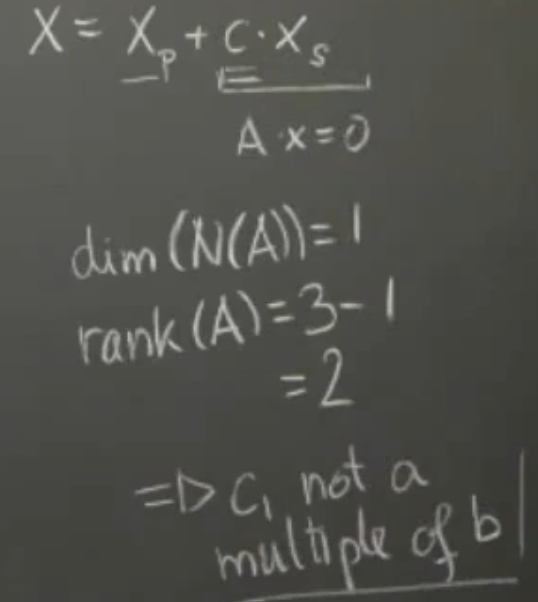 X = Xp + C · Xs
A · x = 0
dim (N(A)) = 1
rank (A) = 3 - 1
= 2
=> C1 not a
multiple of b